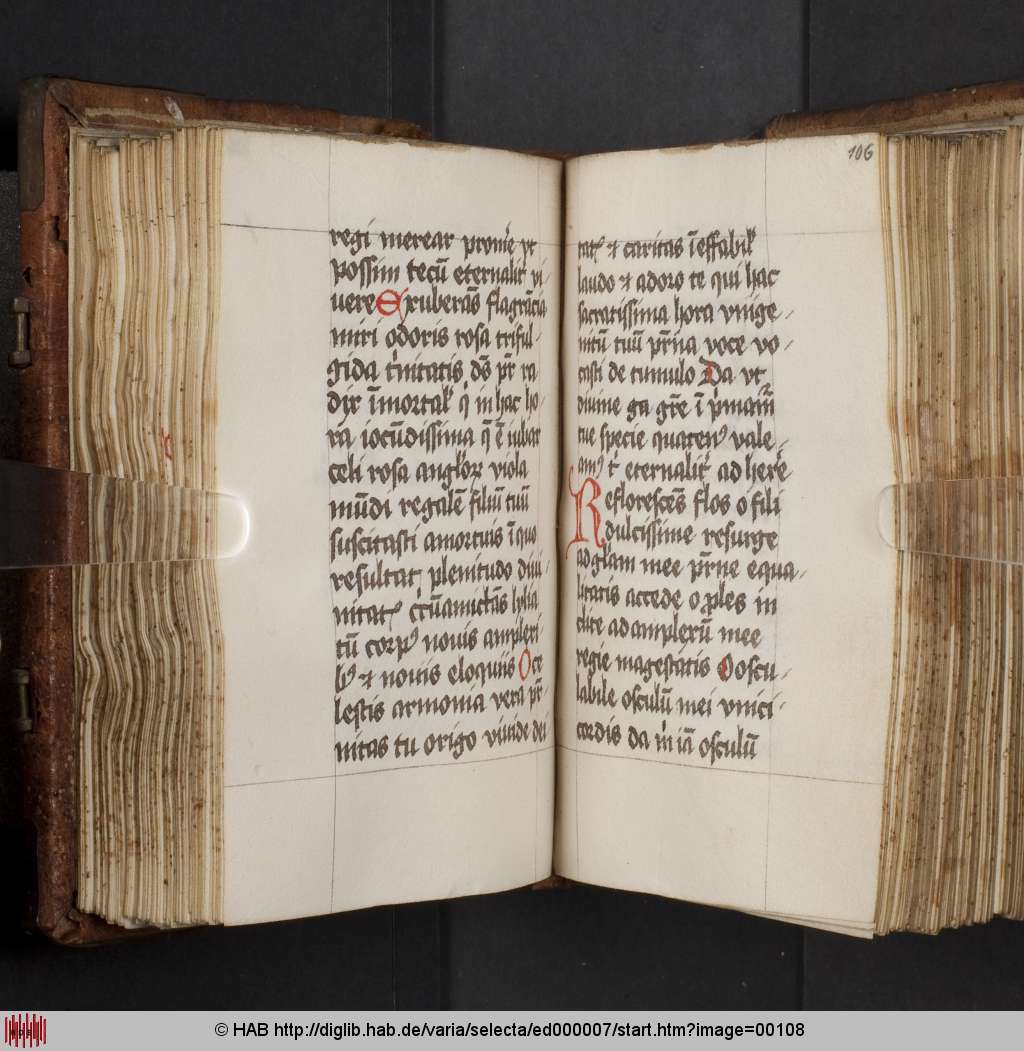 regi merear prom̄e vt
possim tecū eternalit̛ vi
uere Exuberās flagrācia
miri odoris rosa triful-
gida t̛nitatis dꝰs pr̄ ra
dix īmortal̛ q̛ in hac ho-
ra iocūdissima q̄ ē iubar
celi rosa angl̛oꝝ viola
mūdi regalē filiū tuū
suscitasti amortuis ī quo
resultat plenitudo diui-
nitatꝭ
tū corpꝰ nouis amplexi
bꝰ ⁊ nouis eloquiis O ce
lestis armonia vera pr̄-
nitas tu origo viuide dei
106
tatꝭ ⁊ caritas īeffabil̛
laudo ⁊ adoro te qui hac
sacratissima hora vnige-
nitū tuū pr̄na voce vo-
casti de tumulo Da vt
diuine ga gr̄e ī
tue specie quatenꝰ vale-
amꝰ t̛ eternalit̛ ad her̄e
Reflorescēs flos o fili
dulcissime resurge
ad gl̄am mee pr̄ne equa-
litatis accede o ꝓles in
clite ad amplexū mee
regie magestatis O oscu-
labile osculū mei vnici-
cordis da m̛ iā osculū
© HAB http://diglib.hab.de/varia/selecta/ed000007/start.htm?image=00108